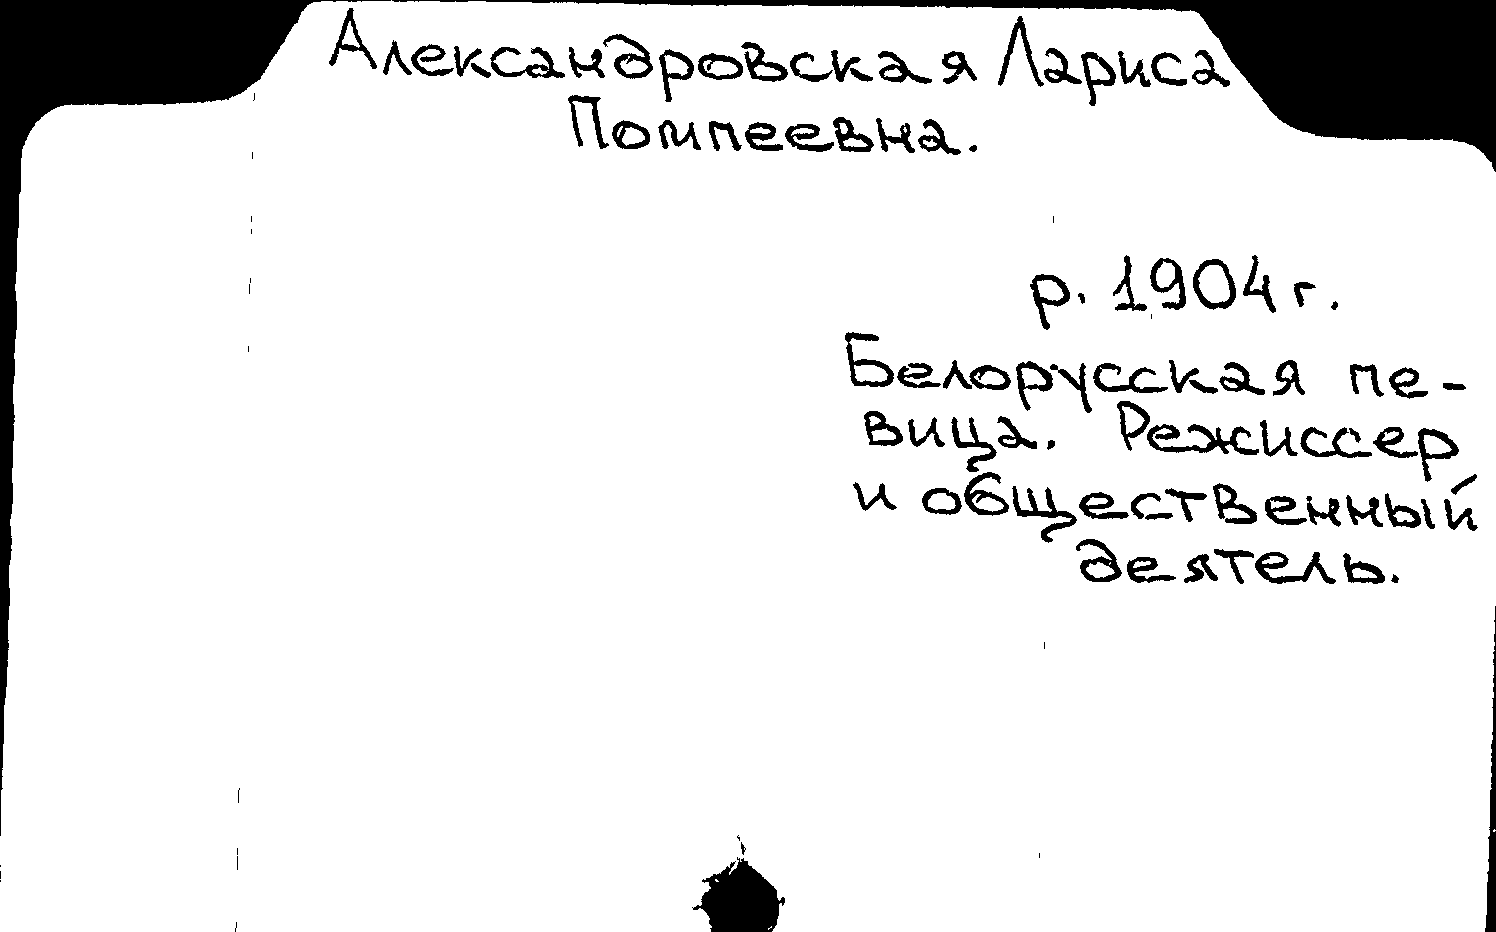 Александровская Лариса
Помпеевна.
р. 1904 г.
Белорусская пе-
вица. Режиссер
и общественный
деятель.